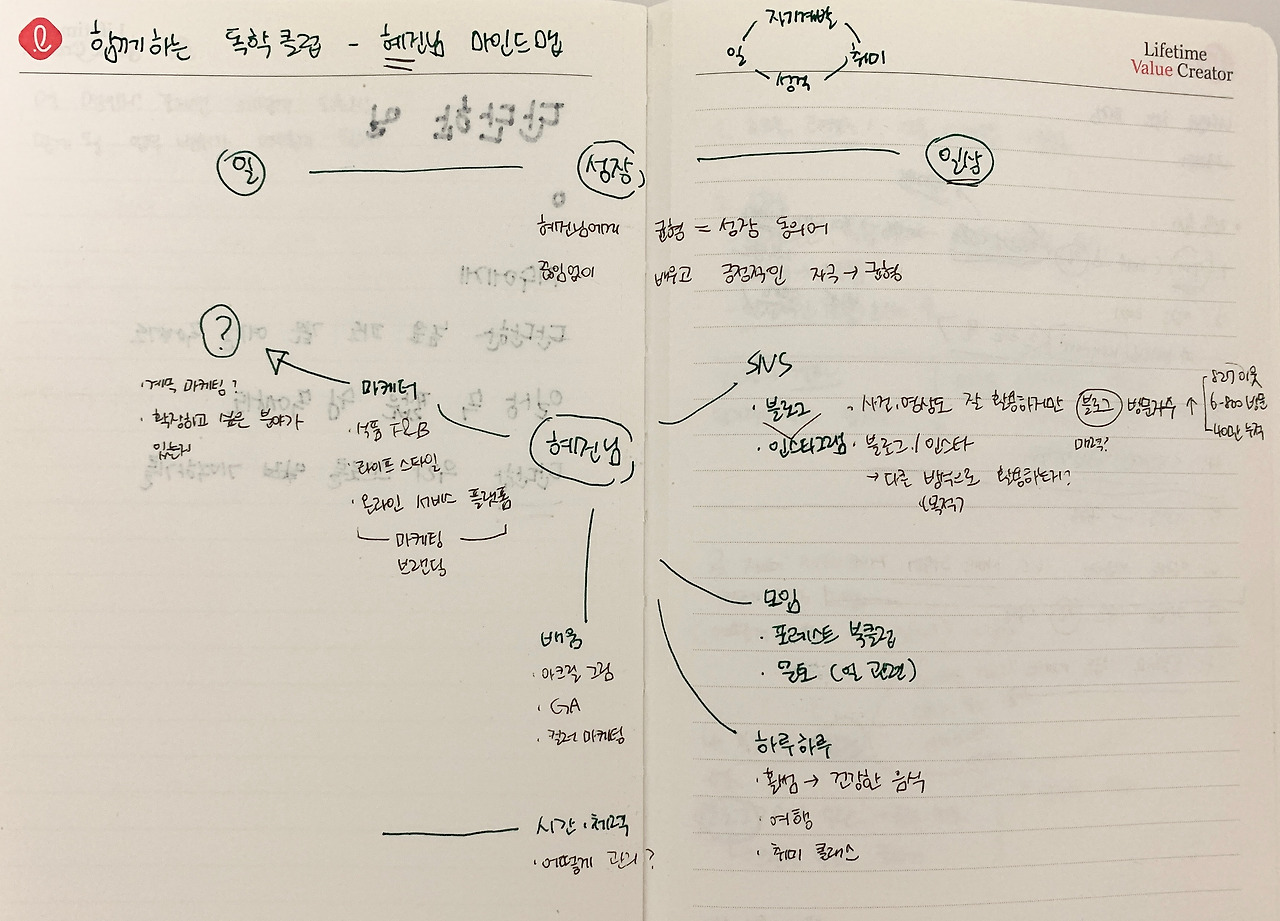 함께하는 독학클럽 - 혜진님 마인드맵
자기계발
일
취미
성격
Lifetime
Value Creator
일
성장
일상
혜진님에게 균형 = 성장 동의어
끊임없이 배우고 긍정적인 자극 → 균형
?
· 계속 마케팅?
· 확장하고 싶은 분야가
있는지
마케터
· 식품 F&B
· 라이프 스타일
· 온라인 서비스 플랫폼
마케팅
브랜딩
혜진님
SNS
· 블로그
· 인스타그램
· 사진·영상도 잘 활용하지만 블로그 방문자수 ↑
매력?
827 이웃
6-800 방문
40만 누적
· 블로그 / 인스타
→ 다른 방식으로 활용하는지?
(목적?
모임
· 포레스트 북클럽
· 문토 (일 관련)
배움
· 아크릴 그림
· GA
· 컬러 마케팅
하루하루
· 홀썸 → 건강한 음식
· 여행
· 취미 클래스
시간·체력
· 어떻게 관리?